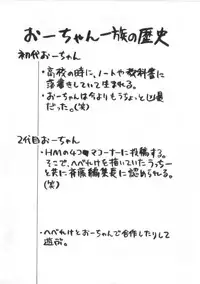 おーちゃん一族の歴史
初代おーちゃん
・高校の時に、ノートや教科書に
落書きしていて生まれる。
・おーちゃんは今よりもうちょっと凶悪
だった。(笑)
2代目おーちゃん
・HMの4コママコーナーに投稿する。
そこで、へべれけを描いていたうっちー
と共に斉藤編集長に認められる。
(笑)
・へべれけとおーちゃんで合作したりして
遊ぶ。